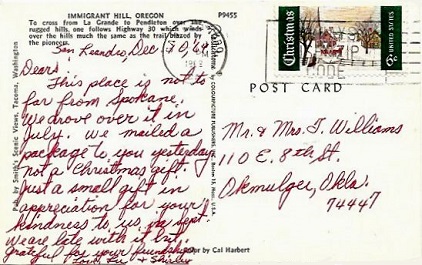 IMMIGRANT HILL, OREGON
P9455
To cross from La Grande to Pendleton over the
rugged hills, one follows Highway 30 which winds
over the hills much the same as the trail blazed by
the pioneers.
San Leandro, Dec 30 69
Dear:
This place is not to
far from Spokane.
We drove over it in
July. We mailed a
package to you yesterday
not a Christmas gift.
Just a small gift in
appreciation for your
kindness to us in Sept.
We are late with it but
grateful for your friendship
& Shirley
by Cal Harbert
Pub. by Smith's Scenic Views, Tacoma, Washington
Christmas
6¢ UNITED STATES
ZIP
CODE
POST CARD
Mr. & Mrs. T. Williams
110 E. 8th St.
Okmulgee, Okla.
74447